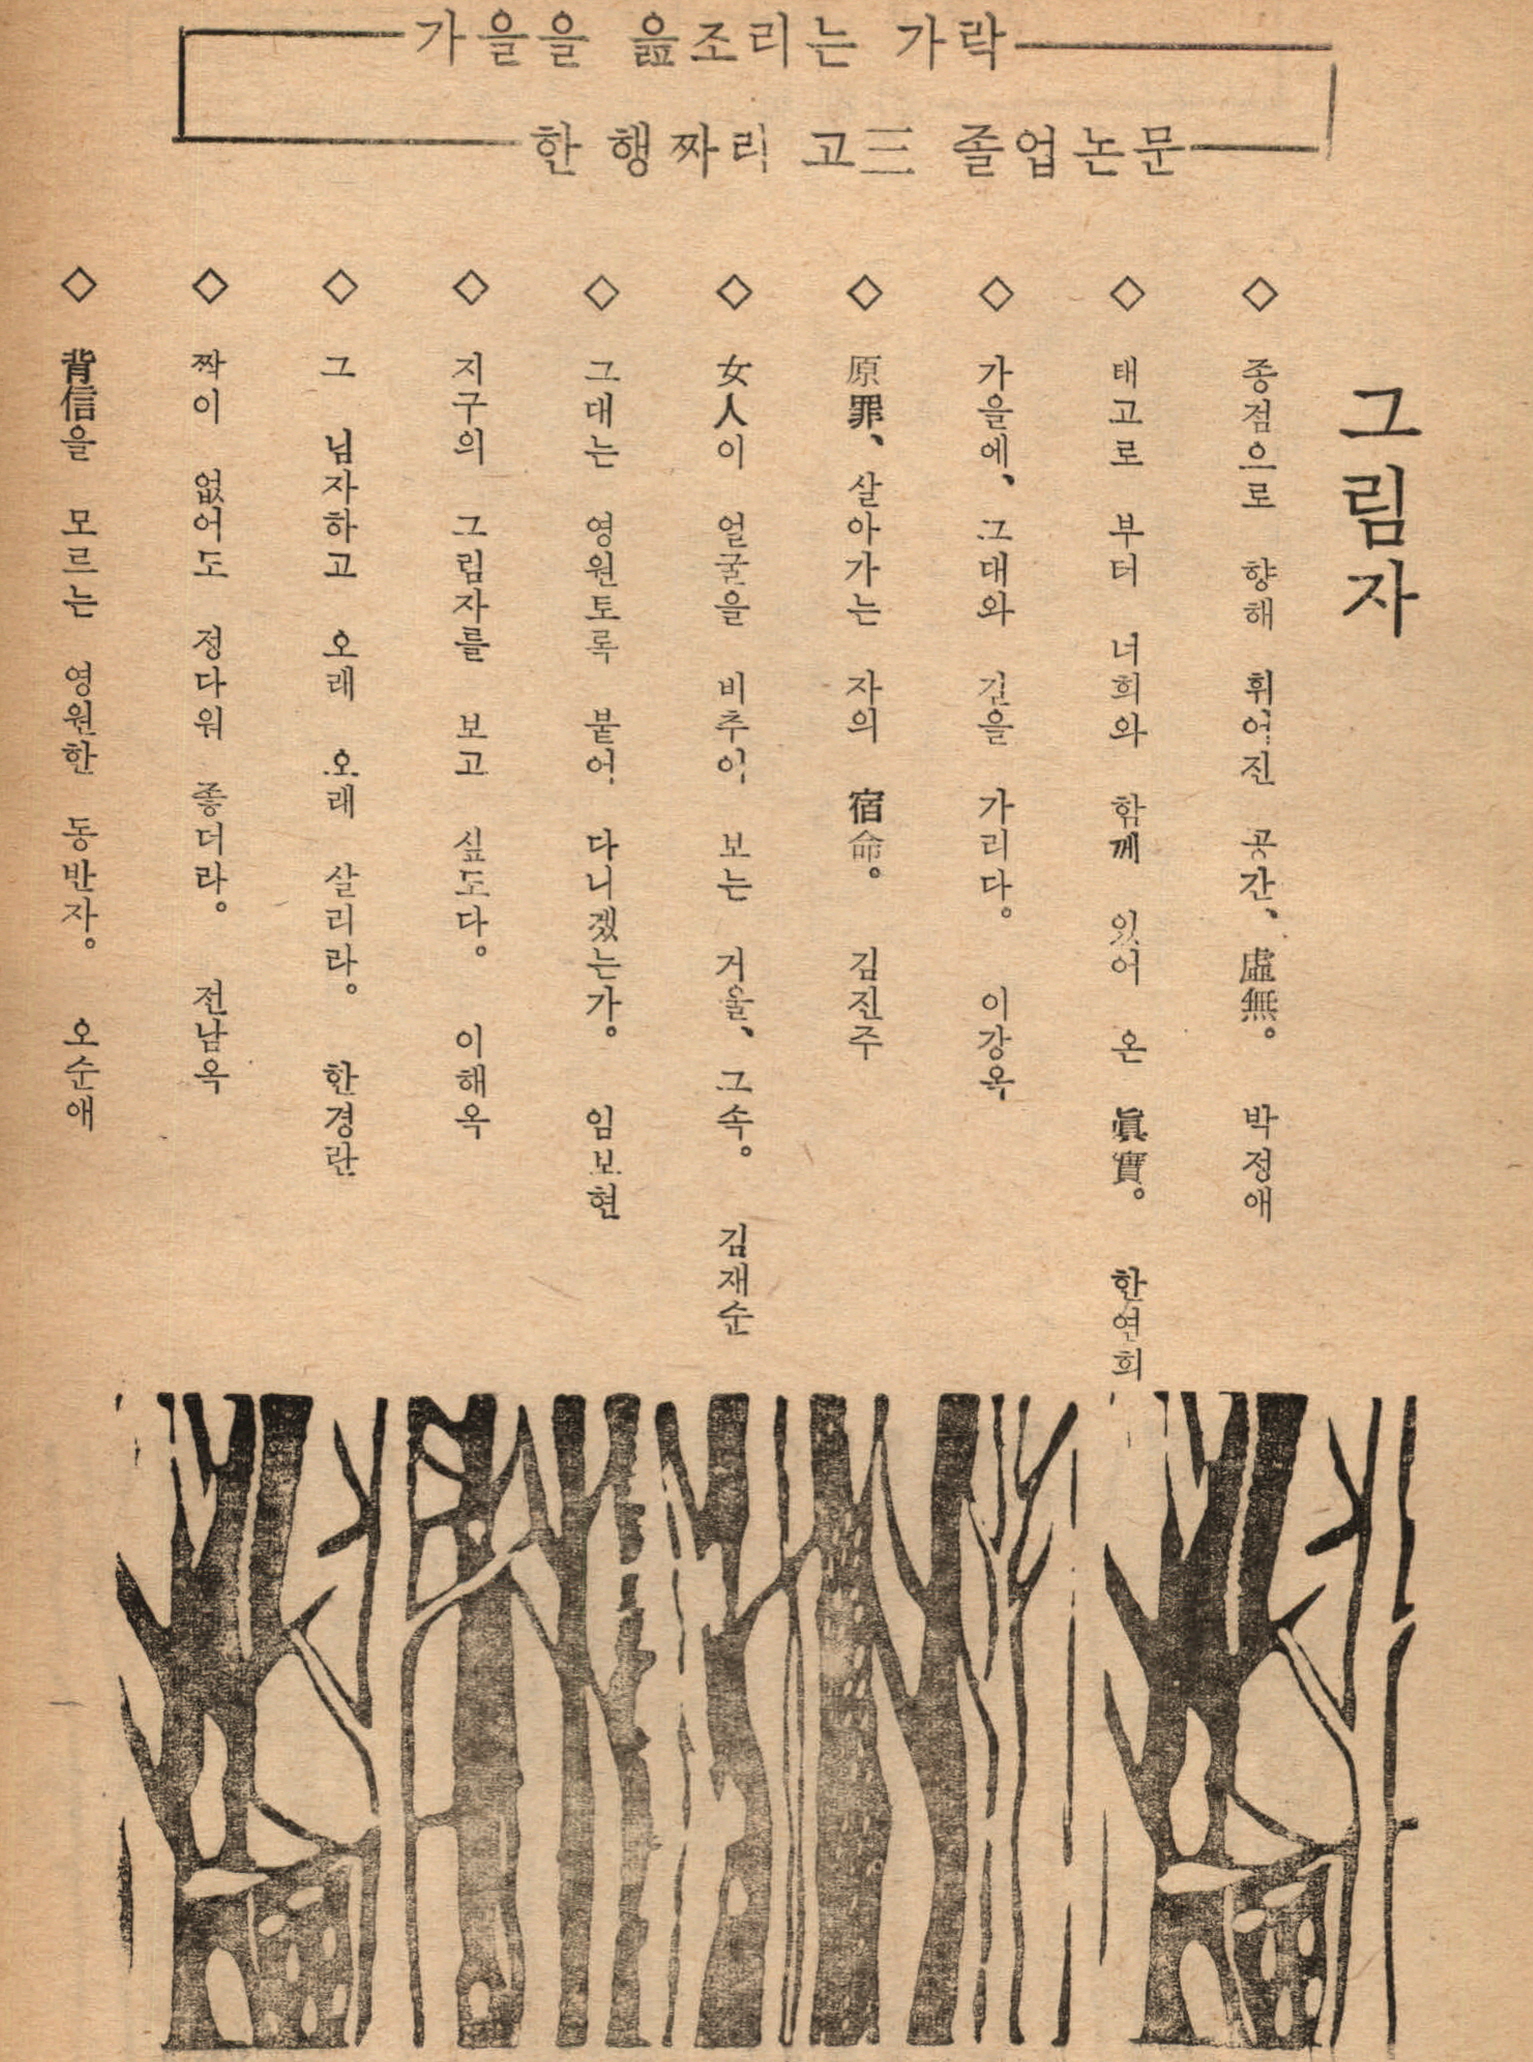 가을을 읊조리는 가락
한 행짜리 고三 졸업논문
그림자
◇ 종점으로 향해 휘어진 공간、虛無。 박정애
◇ 태고로 부터 너희와 함께 있어 온 眞實。 한연희
◇ 가을에、그대와 길을 가리다。 이강옥
◇ 原罪、살아가는 자의 宿命。 김진주
◇ 女人이 얼굴을 비추어 보는 거울、그속。 김재순
◇ 그대는 영원토록 붙어 다니겠는가。 임보현
◇ 지구의 그림자를 보고 싶도다。 이해옥
◇ 그 님자하고 오래 오래 살리라。 한경란
◇ 짝이 없어도 정다워 좋더라。 전남옥
◇ 背信을 모르는 영원한 동반자。 오순애